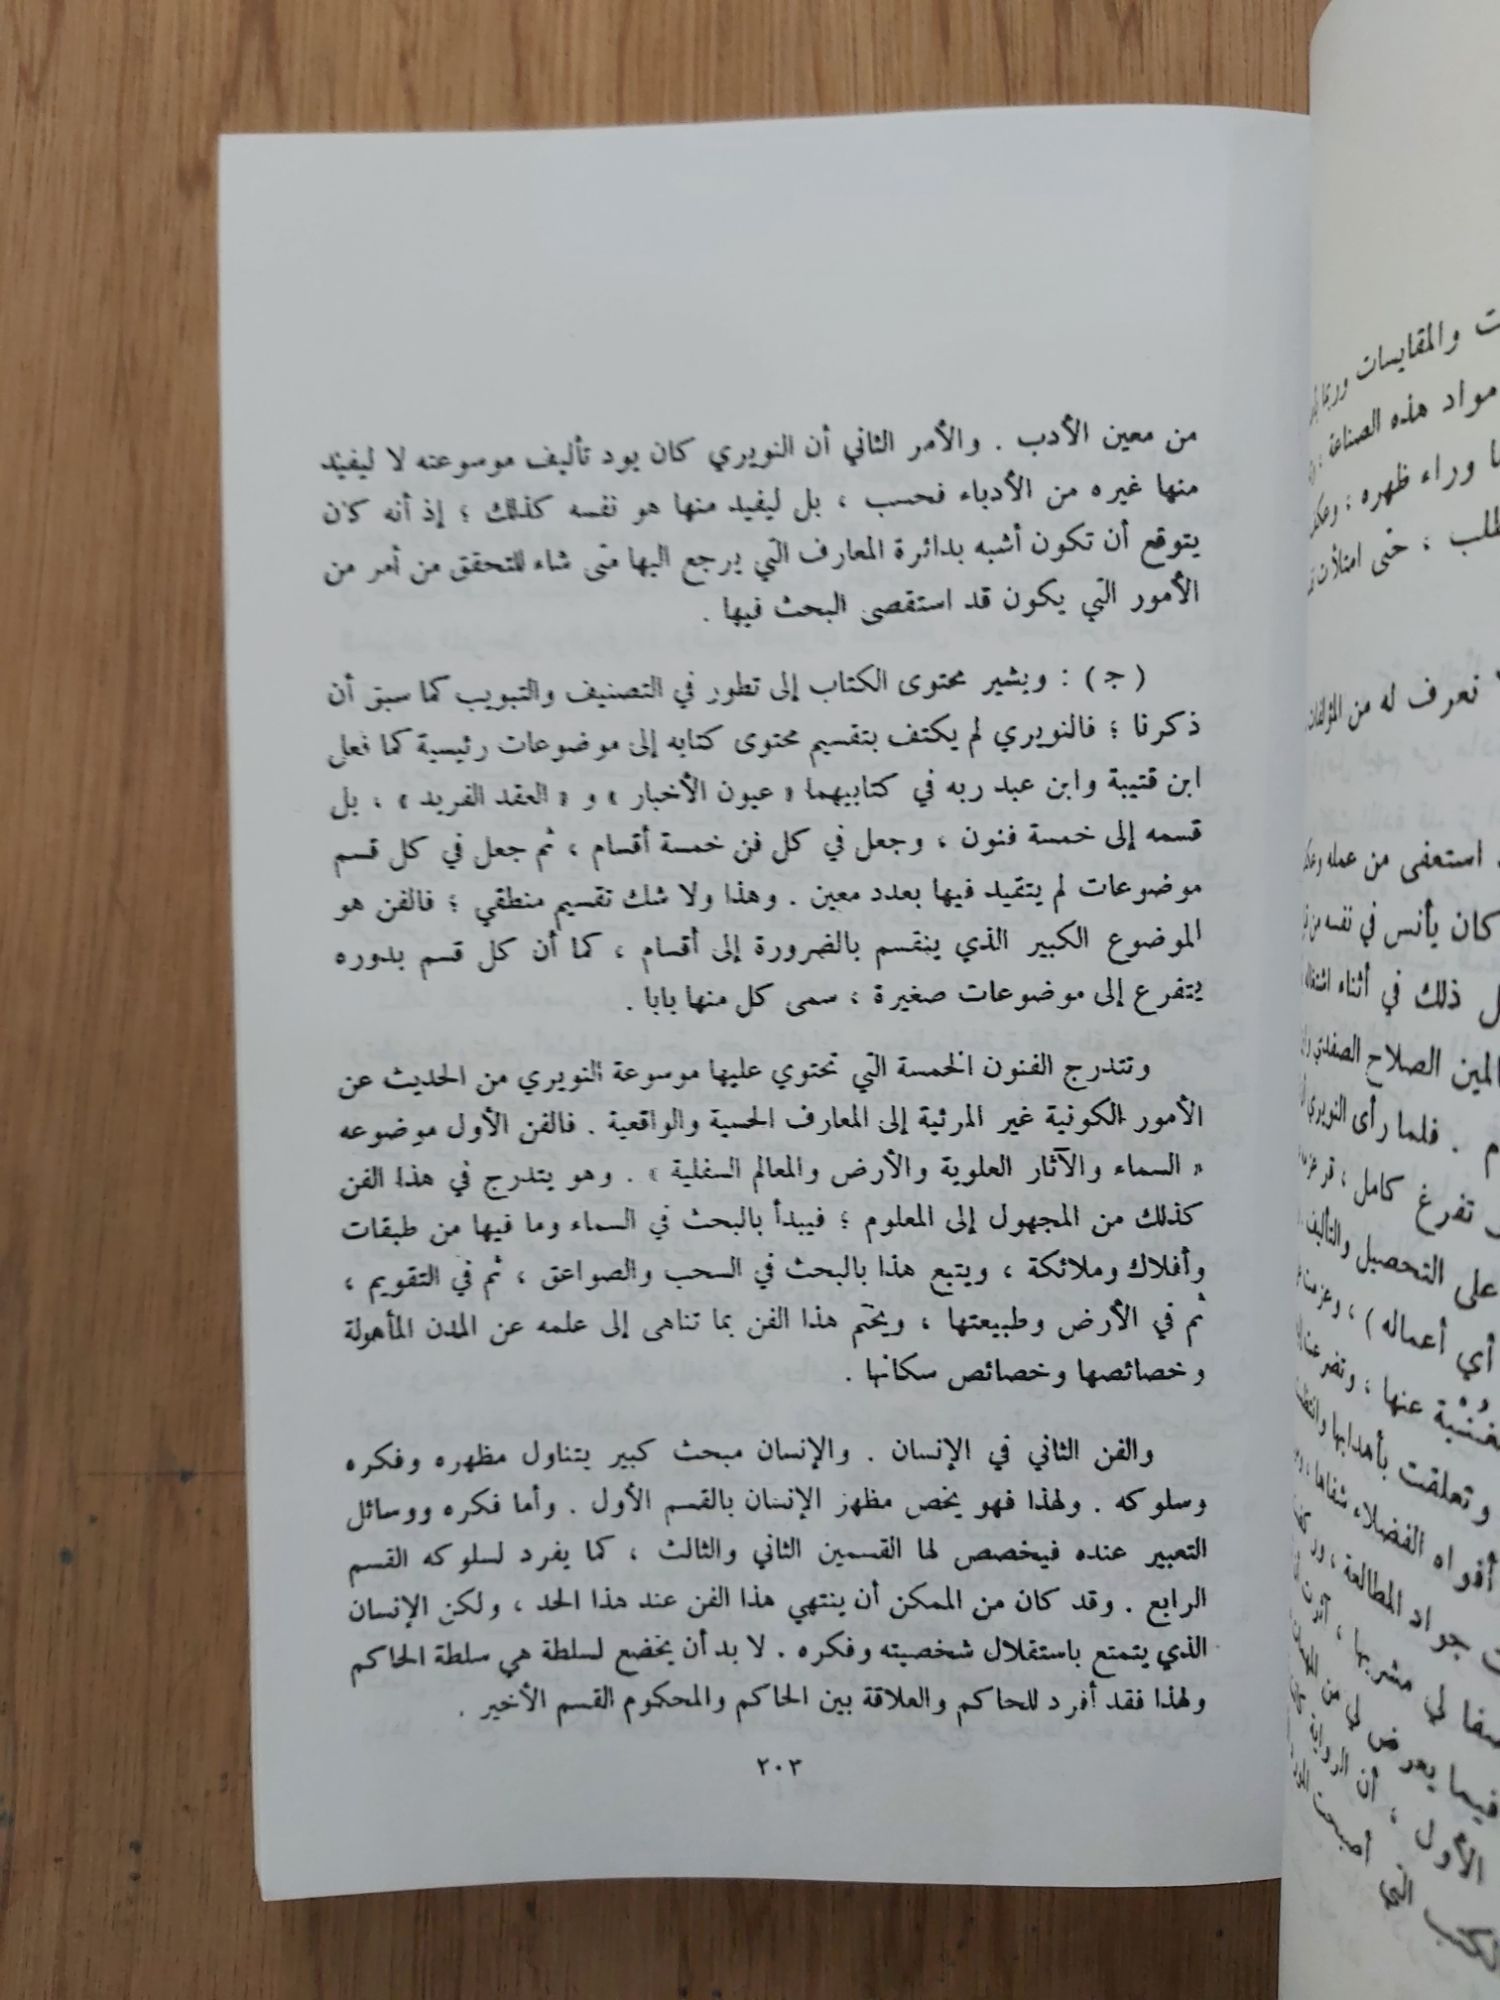 من معين الأدب . والأمر الثاني أن النويري كان يود تأليف موسوعته لا ليفيد
منها غيره من الأدباء فحسب ، بل ليفيد منها هو نفسه كذلك ؛ إذ أنه كان
يتوقع أن تكون أشبه بدائرة المعارف التي يرجع اليها متى شاء للتحقق من أمر من
الأمور التي يكون قد استقصى البحث فيها .
( ج ) : ويشير محتوى الكتاب إلى تطور في التصنيف والتبويب كما سبق أن
ذكرنا ؛ فالنويري لم يكتف بتقسيم محتوى كتابه إلى موضوعات رئيسية كما فعل
ابن قتيبة وابن عبد ربه في كتابيهما « عيون الأخبار » و « العقد الفريد » ، بل
قسمه إلى خمسة فنون ، وجعل في كل فن خمسة أقسام ، ثم جعل في كل قسم
موضوعات لم يتقيد فيها بعدد معين . وهذا ولا شك تقسيم منطقي ؛ فالفن هو
الموضوع الكبير الذي ينقسم بالضرورة إلى أقسام ، كما أن كل قسم بدوره
يتفرع إلى موضوعات صغيرة ، سمى كل منها بابا .
وتتدرج الفنون الخمسة التي تحتوي عليها موسوعة النويري من الحديث عن
الأمور الكونية غير المرئية إلى المعارف الحسية والواقعية . فالفن الأول موضوعه
« السماء والآثار العلوية والأرض والمعالم السفلية » . وهو يتدرج في هذا الفن
كذلك من المجهول إلى المعلوم ؛ فيبدأ بالبحث في السماء وما فيها من طبقات
وأفلاك وملائكة ، ويتبع هذا بالبحث في السحب والصواعق ، ثم في التقويم ،
ثم في الأرض وطبيعتها ، ويختم هذا الفن بما تناهى إلى علمه عن المدن المأهولة
وخصائصها وخصائص سكانها .
والفن الثاني في الإنسان . والإنسان مبحث كبير يتناول مظهره وفكره
وسلوكه . ولهذا فهو يخص مظهر الإنسان بالقسم الأول . وأما فكره ووسائل
التعبير عنده فيخصص لها القسمين الثاني والثالث ، كما يفرد لسلوكه القسم
الرابع . وقد كان من الممكن أن ينتهي هذا الفن عند هذا الحد ، ولكن الإنسان
الذي يتمتع باستقلال شخصيته وفكره . لا بد أن يخضع لسلطة هي سلطة الحاكم
ولهذا فقد أفرد للحاكم والعلاقة بين الحاكم والمحكوم القسم الأخير .
٢٠٣
والمقايسات
مواد هذه الصناعة
وراء ظهره ؛
، حتى امتلأت
نعرف له من المؤلفات
استعفى من عمله
كان يأنس في نفسه من
ذلك في أثناء
الصلاح الصفدي
. فلما رأى النويري
تفرغ كامل ،
على التحصيل والتأليف
أي أعماله ) ،
عنها ،
وتعلقت بأهدابها
أفواه الفضلاء شفاها ،
جواد المطالعة ،
لي مشربها ،
فيما يعرض لي من
الأول ، أن الرواية
التي أصبحت